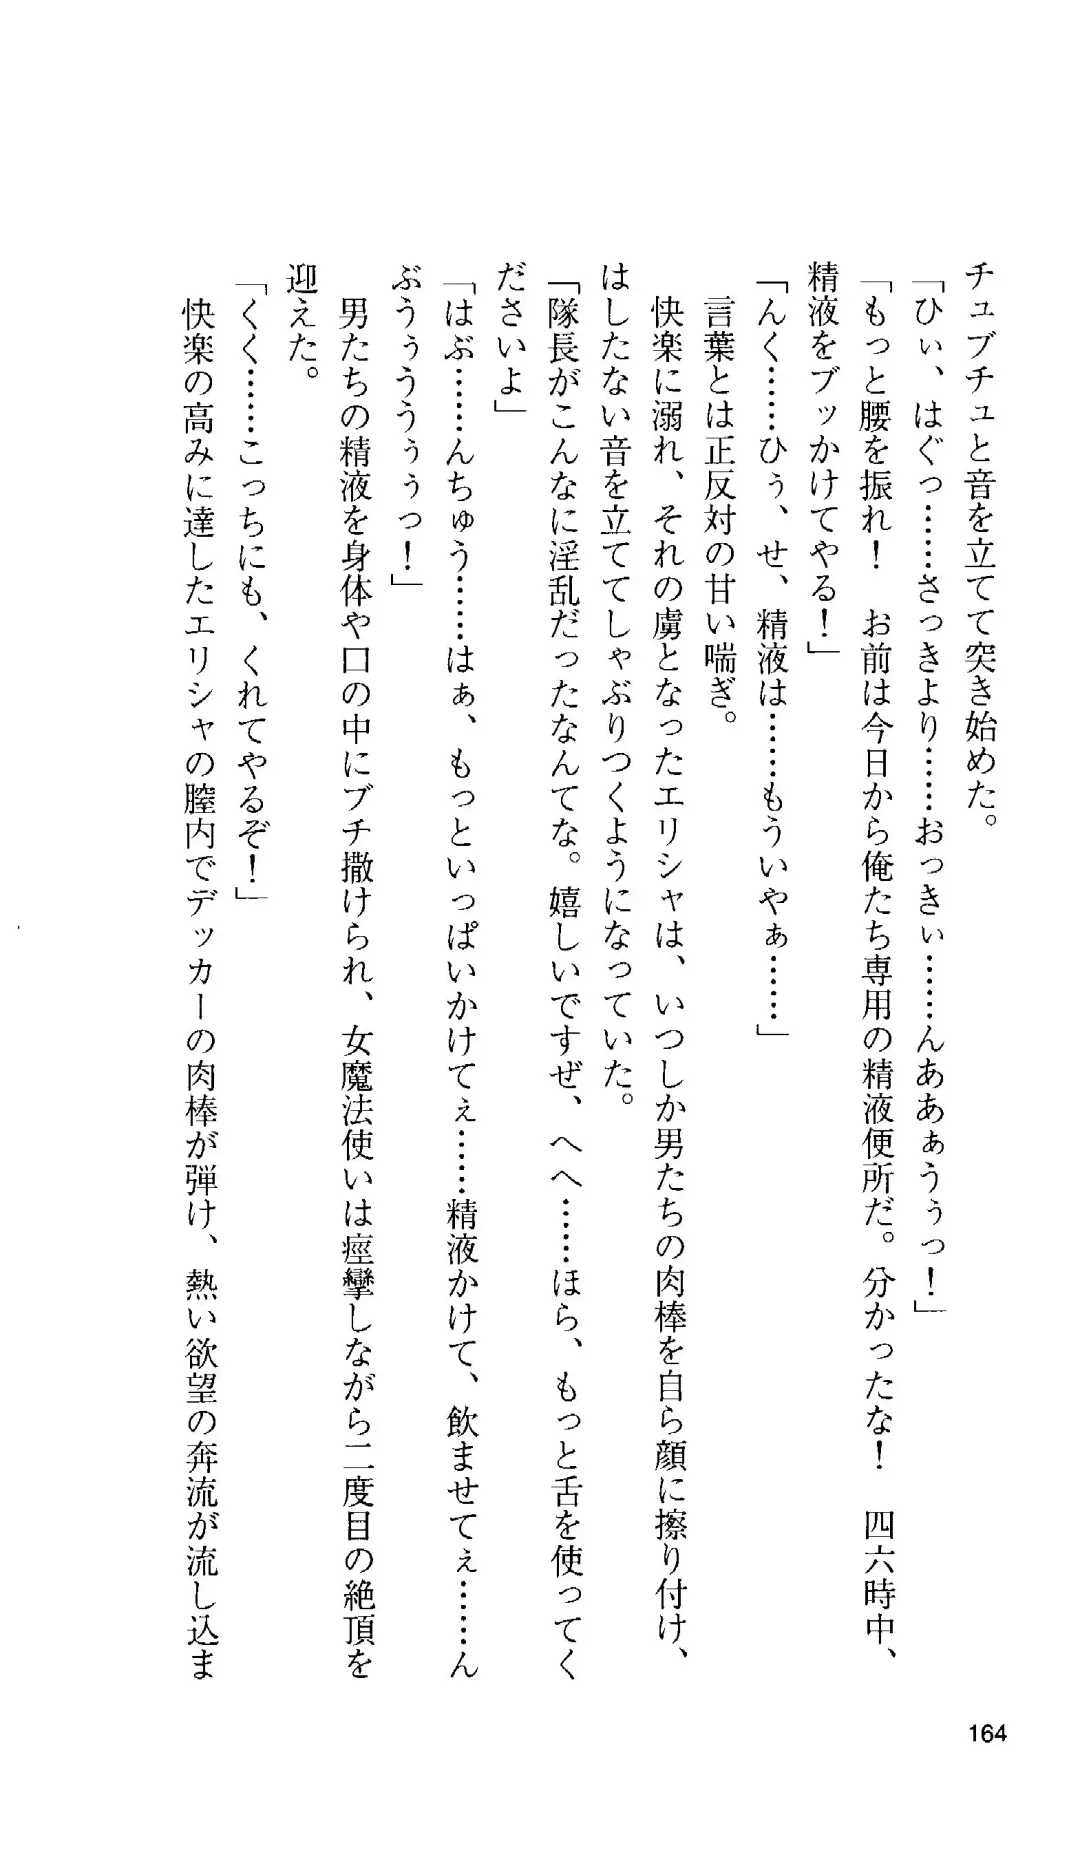 チュブチュと音を立てて突き始めた。
「ひぃ、はぐっ……さっきより……おっきぃ……んああぁうぅっ！」
「もっと腰を振れ！　お前は今日から俺たち専用の精液便所だ。分かったな！　四六時中、
精液をブッかけてやる！」
「んく……ひぅ、せ、精液は……もういやぁ……」
　言葉とは正反対の甘い喘ぎ。
　快楽に溺れ、それの虜となったエリシャは、いつしか男たちの肉棒を自ら顔に擦り付け、
はしたない音を立ててしゃぶりつくようになっていた。
「隊長がこんなに淫乱だったなんてな。嬉しいですぜ、へへ……ほら、もっと舌を使ってく
ださいよ」
「はぶ……んちゅう……はぁ、もっといっぱいかけてぇ……精液かけて、飲ませてぇ……ん
ぶうぅううぅぅっ！」
　男たちの精液を身体や口の中にブチ撒けられ、女魔法使いは痙攣しながら二度目の絶頂を
迎えた。
「くく……こっちにも、くれてやるぞ！」
　快楽の高みに達したエリシャの膣内でデッカーの肉棒が弾け、熱い欲望の奔流が流し込ま
164